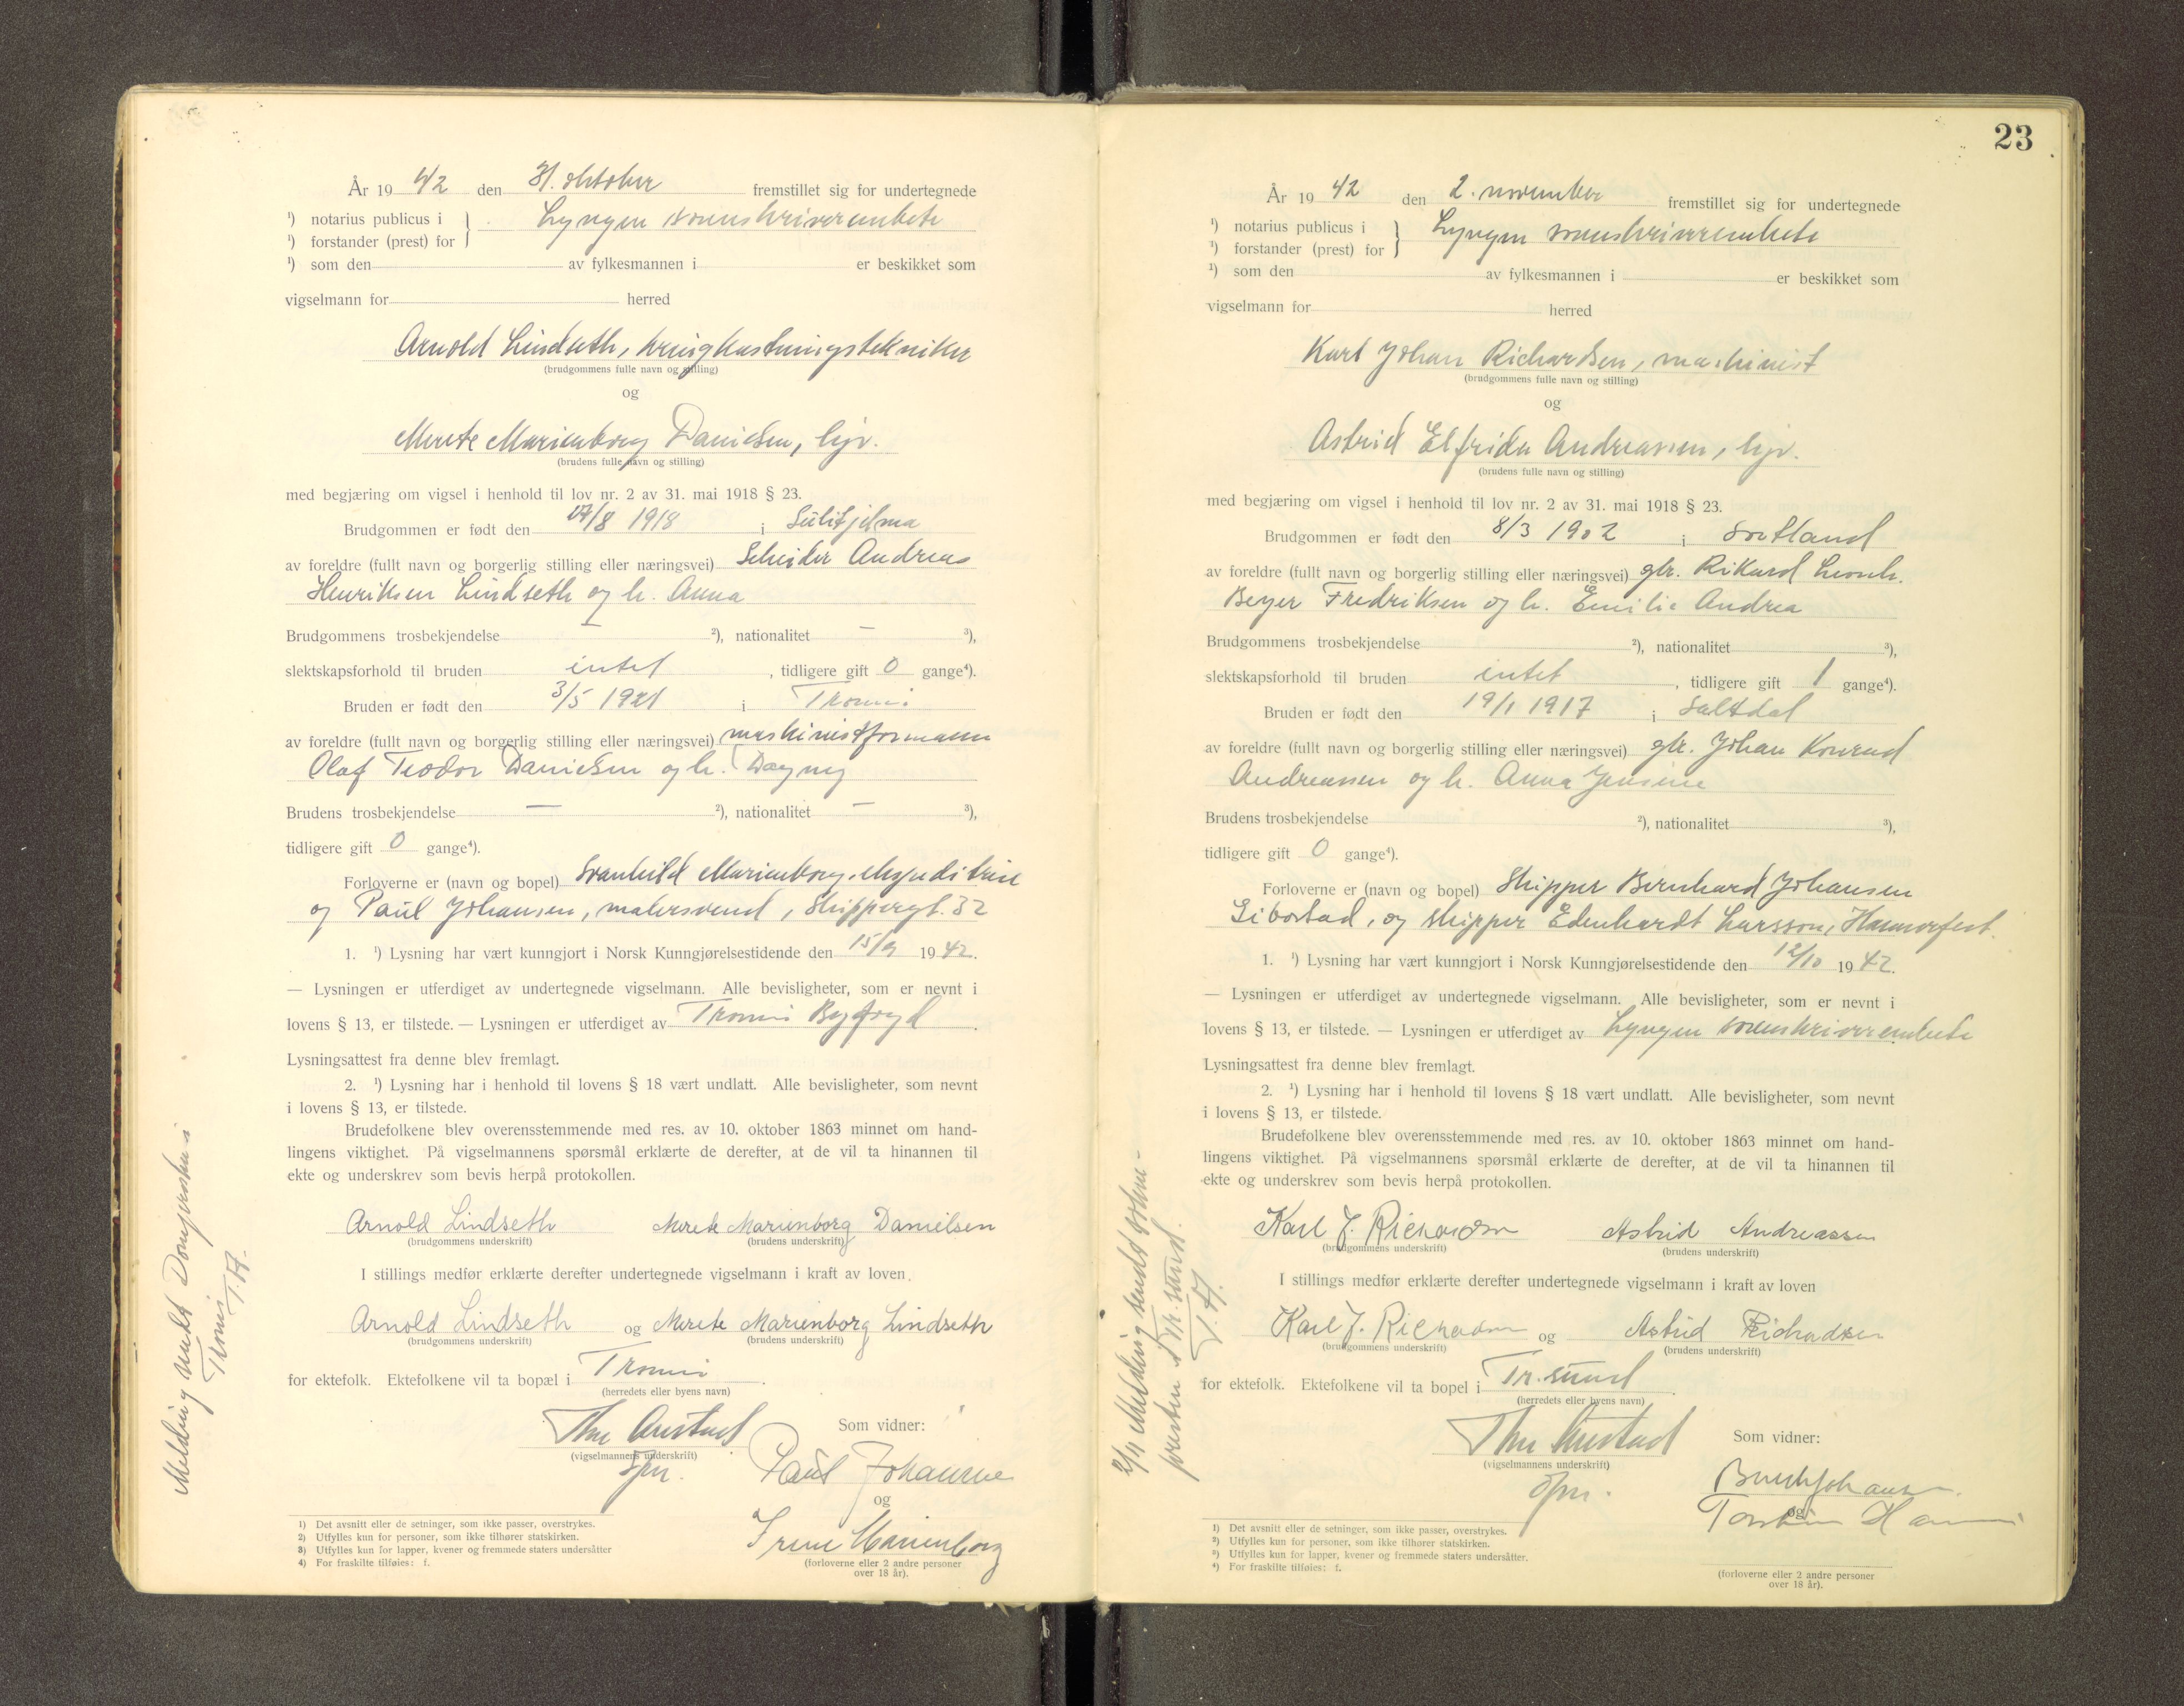 År 19 42 den 31. oktober fremstillet sig for undertegnede
¹) notarius publicus i
¹) forstander (prest) for } Lyngen sorenskriverembete
¹) som den av fylkesmannen i er beskikket som
vigselmann for herred
Arnold Lindseth, kringkastningstekniker
(brudgommens fulle navn og stilling)
og
Merete Marienborg Danielsen, hjv.
(brudens fulle navn og stilling)
med begjæring om vigsel i henhold til lov nr. 2 av 31. mai 1918 § 23.
Brudgommen er født den 17/8 1918 i Sulitjelma
av foreldre (fullt navn og borgerlig stilling eller næringsvei) Scheider Andreas
Henriksen Lindseth og h. Anna
Brudgommens trosbekjendelse — ²), nationalitet — ³),
slektskapsforhold til bruden intet, tidligere gift 0 gange⁴).
Bruden er født den 3/5 1921 i Tromsø
av foreldre (fullt navn og borgerlig stilling eller næringsvei) maskinistformann
Olaf Teodor Danielsen og h. Dagny
Brudens trosbekjendelse — ²), nationalitet — ³),
tidligere gift 0 gange⁴).
Forloverne er (navn og bopel) Svanhild Marienborg, ekspeditrise
og Paul Johansen, malersvend, Skippergt. 32
1. ¹) Lysning har vært kunngjort i Norsk Kunngjørelsestidende den 15/9 1942.
— Lysningen er utferdiget av undertegnede vigselmann. Alle bevisligheter, som er nevnt i
lovens § 13, er tilstede. — Lysningen er utferdiget av Tromsø Byfogd.
Lysningsattest fra denne blev fremlagt.
2. ¹) Lysning har i henhold til lovens § 18 vært undlatt. Alle bevisligheter, som nevnt
i lovens § 13, er tilstede.
Brudefolkene blev overensstemmende med res. av 10. oktober 1863 minnet om hand-
lingens viktighet. På vigselmannens spørsmål erklærte de derefter, at de vil ta hinannen til
ekte og underskrev som bevis herpå protokollen.
Arnold Lindseth Merete Marienborg Danielsen
(brudgommens underskrift) (brudens underskrift)
I stillings medfør erklærte derefter undertegnede vigselmann i kraft av loven
Arnold Lindseth og Merete Marienborg Lindseth
(brudgommens underskrift) (brudens underskrift)
for ektefolk. Ektefolkene vil ta bopæl i Tromsø.
(herredets eller byens navn)
Thu Austad Som vidner:
(vigselmannens underskrift)
Paul Johansen
og
Irene Marienborg
(forloverne eller 2 andre personer
over 18 år).
1) Det avsnitt eller de setninger, som ikke passer, overstrykes.
2) Utfylles kun for personer, som ikke tilhører statskirken.
3) Utfylles kun for lapper, kvener og fremmede staters undersåtter
4) For fraskilte tilføies: f.
Melding sendt Domprosten i
Tromsø
T.A.
23
År 19 42 den 2. november fremstillet sig for undertegnede
¹) notarius publicus i
¹) forstander (prest) for } Lyngen sorenskriverembete
¹) som den av fylkesmannen i er beskikket som
vigselmann for herred
Karl Johan Richardsen, maskinist
(brudgommens fulle navn og stilling)
og
Astrid Elfrida Andreassen, hjv.
(brudens fulle navn og stilling)
med begjæring om vigsel i henhold til lov nr. 2 av 31. mai 1918 § 23.
Brudgommen er født den 8/3 1902 i Sortland
av foreldre (fullt navn og borgerlig stilling eller næringsvei) gbr. Rikard Leonh.
Beyer Fredriksen og h. Emilie Andrea
Brudgommens trosbekjendelse ²), nationalitet ³),
slektskapsforhold til bruden intet, tidligere gift 1 gange⁴).
Bruden er født den 19/1 1917 i Saltdal
av foreldre (fullt navn og borgerlig stilling eller næringsvei) gbr. Johan Konrad
Andreassen og h. Anna Jensine
Brudens trosbekjendelse ²), nationalitet ³),
tidligere gift 0 gange⁴).
Forloverne er (navn og bopel) Skipper Bernhard Johansen
Gibostad, og skipper Edenhardt Larsson, Hammerfest.
1. ¹) Lysning har vært kunngjort i Norsk Kunngjørelsestidende den 12/10 1942.
— Lysningen er utferdiget av undertegnede vigselmann. Alle bevisligheter, som er nevnt i
lovens § 13, er tilstede. — Lysningen er utferdiget av Lyngen sorenskriverembete
Lysningsattest fra denne blev fremlagt.
2. ¹) Lysning har i henhold til lovens § 18 vært undlatt. Alle bevisligheter, som nevnt
i lovens § 13, er tilstede.
Brudefolkene blev overensstemmende med res. av 10. oktober 1863 minnet om hand-
lingens viktighet. På vigselmannens spørsmål erklærte de derefter, at de vil ta hinannen til
ekte og underskrev som bevis herpå protokollen.
Karl J. Richardsen Astrid Andreassen
(brudgommens underskrift) (brudens underskrift)
I stillings medfør erklærte derefter undertegnede vigselmann i kraft av loven
Karl J. Richardsen og Astrid Richardsen
(brudgommens underskrift) (brudens underskrift)
for ektefolk. Ektefolkene vil ta bopel i Tr.sund.
(herredets eller byens navn)
Thu Austad Som vidner:
(vigselmannens underskrift)
Johansen
og
(forloverne eller 2 andre personer
over 18 år).
1) Det avsnitt eller de setninger, som ikke passer, overstrykes.
2) Utfylles kun for personer, som ikke tilhører statskirken.
3) Utfylles kun for lapper, kvener og fremmede staters undersåtter.
4) For fraskilte tilføies: f.
2/11 Melding sendt sokne-
presten i Tr.sund.
T.A.